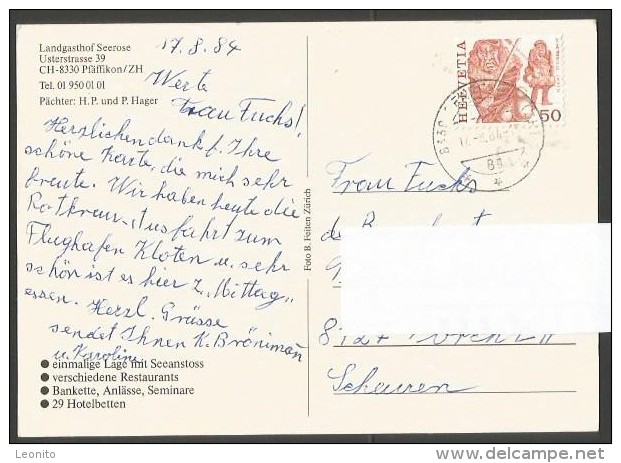 Landgasthof Seerose
Usterstrasse 39
CH-8330 Pfäffikon/ZH
Tel. 01 950 01 01
Pächter: H. P. und P. Hager
17.8.84
Werte
Frau Fuchs!
Herzlichen dank f. Ihre
schöne Karte, die mich sehr
freute. Wir haben heute die
Rotkreuz Ausfahrt zum
Flughafen Kloten u. sehr
schön ist es hier z. „Mittag„
essen. Herzl. Grüsse
sendet Ihnen K. Brönimañ
u. Karoline
● einmalige Lage mit Seeanstoss
● verschiedene Restaurants
● Bankette, Anlässe, Seminare
● 29 Hotelbetten
Foto B. Feiten Zürich
HELVETIA
50
Frau Fuchs
8127
Scheuren
Leonito
delcampe.net